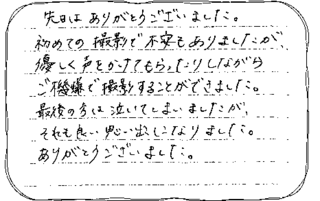 先日は ありがとうございました。
初めての 撮影で 不安も ありましたが、
優しく声をかけてもらったりしながら
ご機嫌で撮影することができました。
最後の方は 泣いてしまいましたが、
それも良い思い出になりました。
ありがとうございました。